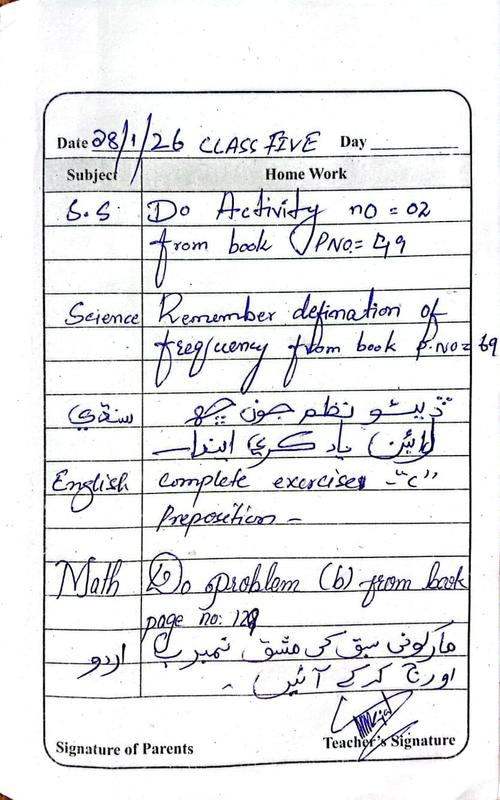 Date 28/1/26 CLASS FIVE Day
Subject Home Work
S.S. Do Activity no = 02
from book PNO= 49
Science Remember defination of
frequency from book P.NO= 69
سنڌي ڏيئو نظم جون ڇھ
لائينَ) ياد ڪري ايندا۔
English complete exercises - "C"
Preposition -
Math Do problem (b) from book
page no: 129
اردو مارکونی سبق کی مشق نمبر ب
اور ج کرکے آئیں ۔
Signature of Parents Teacher's Signature